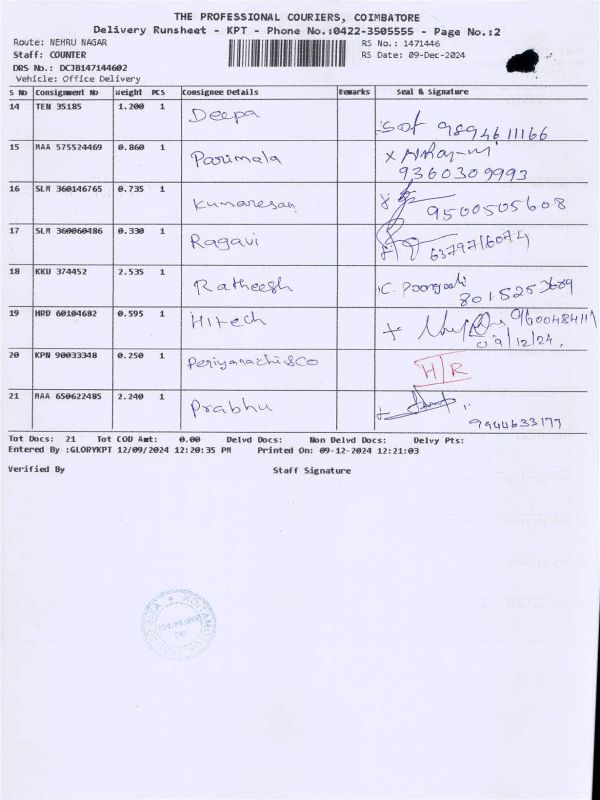 THE PROFESSIONAL COURIERS, COIMBATORE
Delivery Runsheet - KPT - Phone No.:0422-3505555 - Page No.:2
Route: NEHRU NAGAR RS No.: 1471446
Staff: COUNTER RS Date: 09-Dec-2024
DRS No.: DCJB147144602
Vehicle: Office Delivery
S No Consignment No Weight PCS Consignee Details Remarks Seal & Signature
14 TEN 35185 1.200 1 Deepa
9894611166
15 MAA 575524469 0.860 1 Parimala
9360309993
16 SLM 360146765 0.735 1 Kumaresan
9500505608
17 SLM 360060486 0.330 1 Ragavi
6379716074
18 KKU 374452 2.535 1 Ratheesh
8015253689
19 HRD 60104682 0.595 1 Hitech 9600484111
09/12/24,
20 KPN 90033348 0.250 1 Periyanachi & Co H/R
21 MAA 650622485 2.240 1 Prabhu
9944633177
Tot Docs: 21 Tot COD Amt: 0.00 Delvd Docs: Non Delvd Docs: Delvy Pts:
Entered By :GLORYKPT 12/09/2024 12:20:35 PM Printed On: 09-12-2024 12:21:03
Verified By Staff Signature